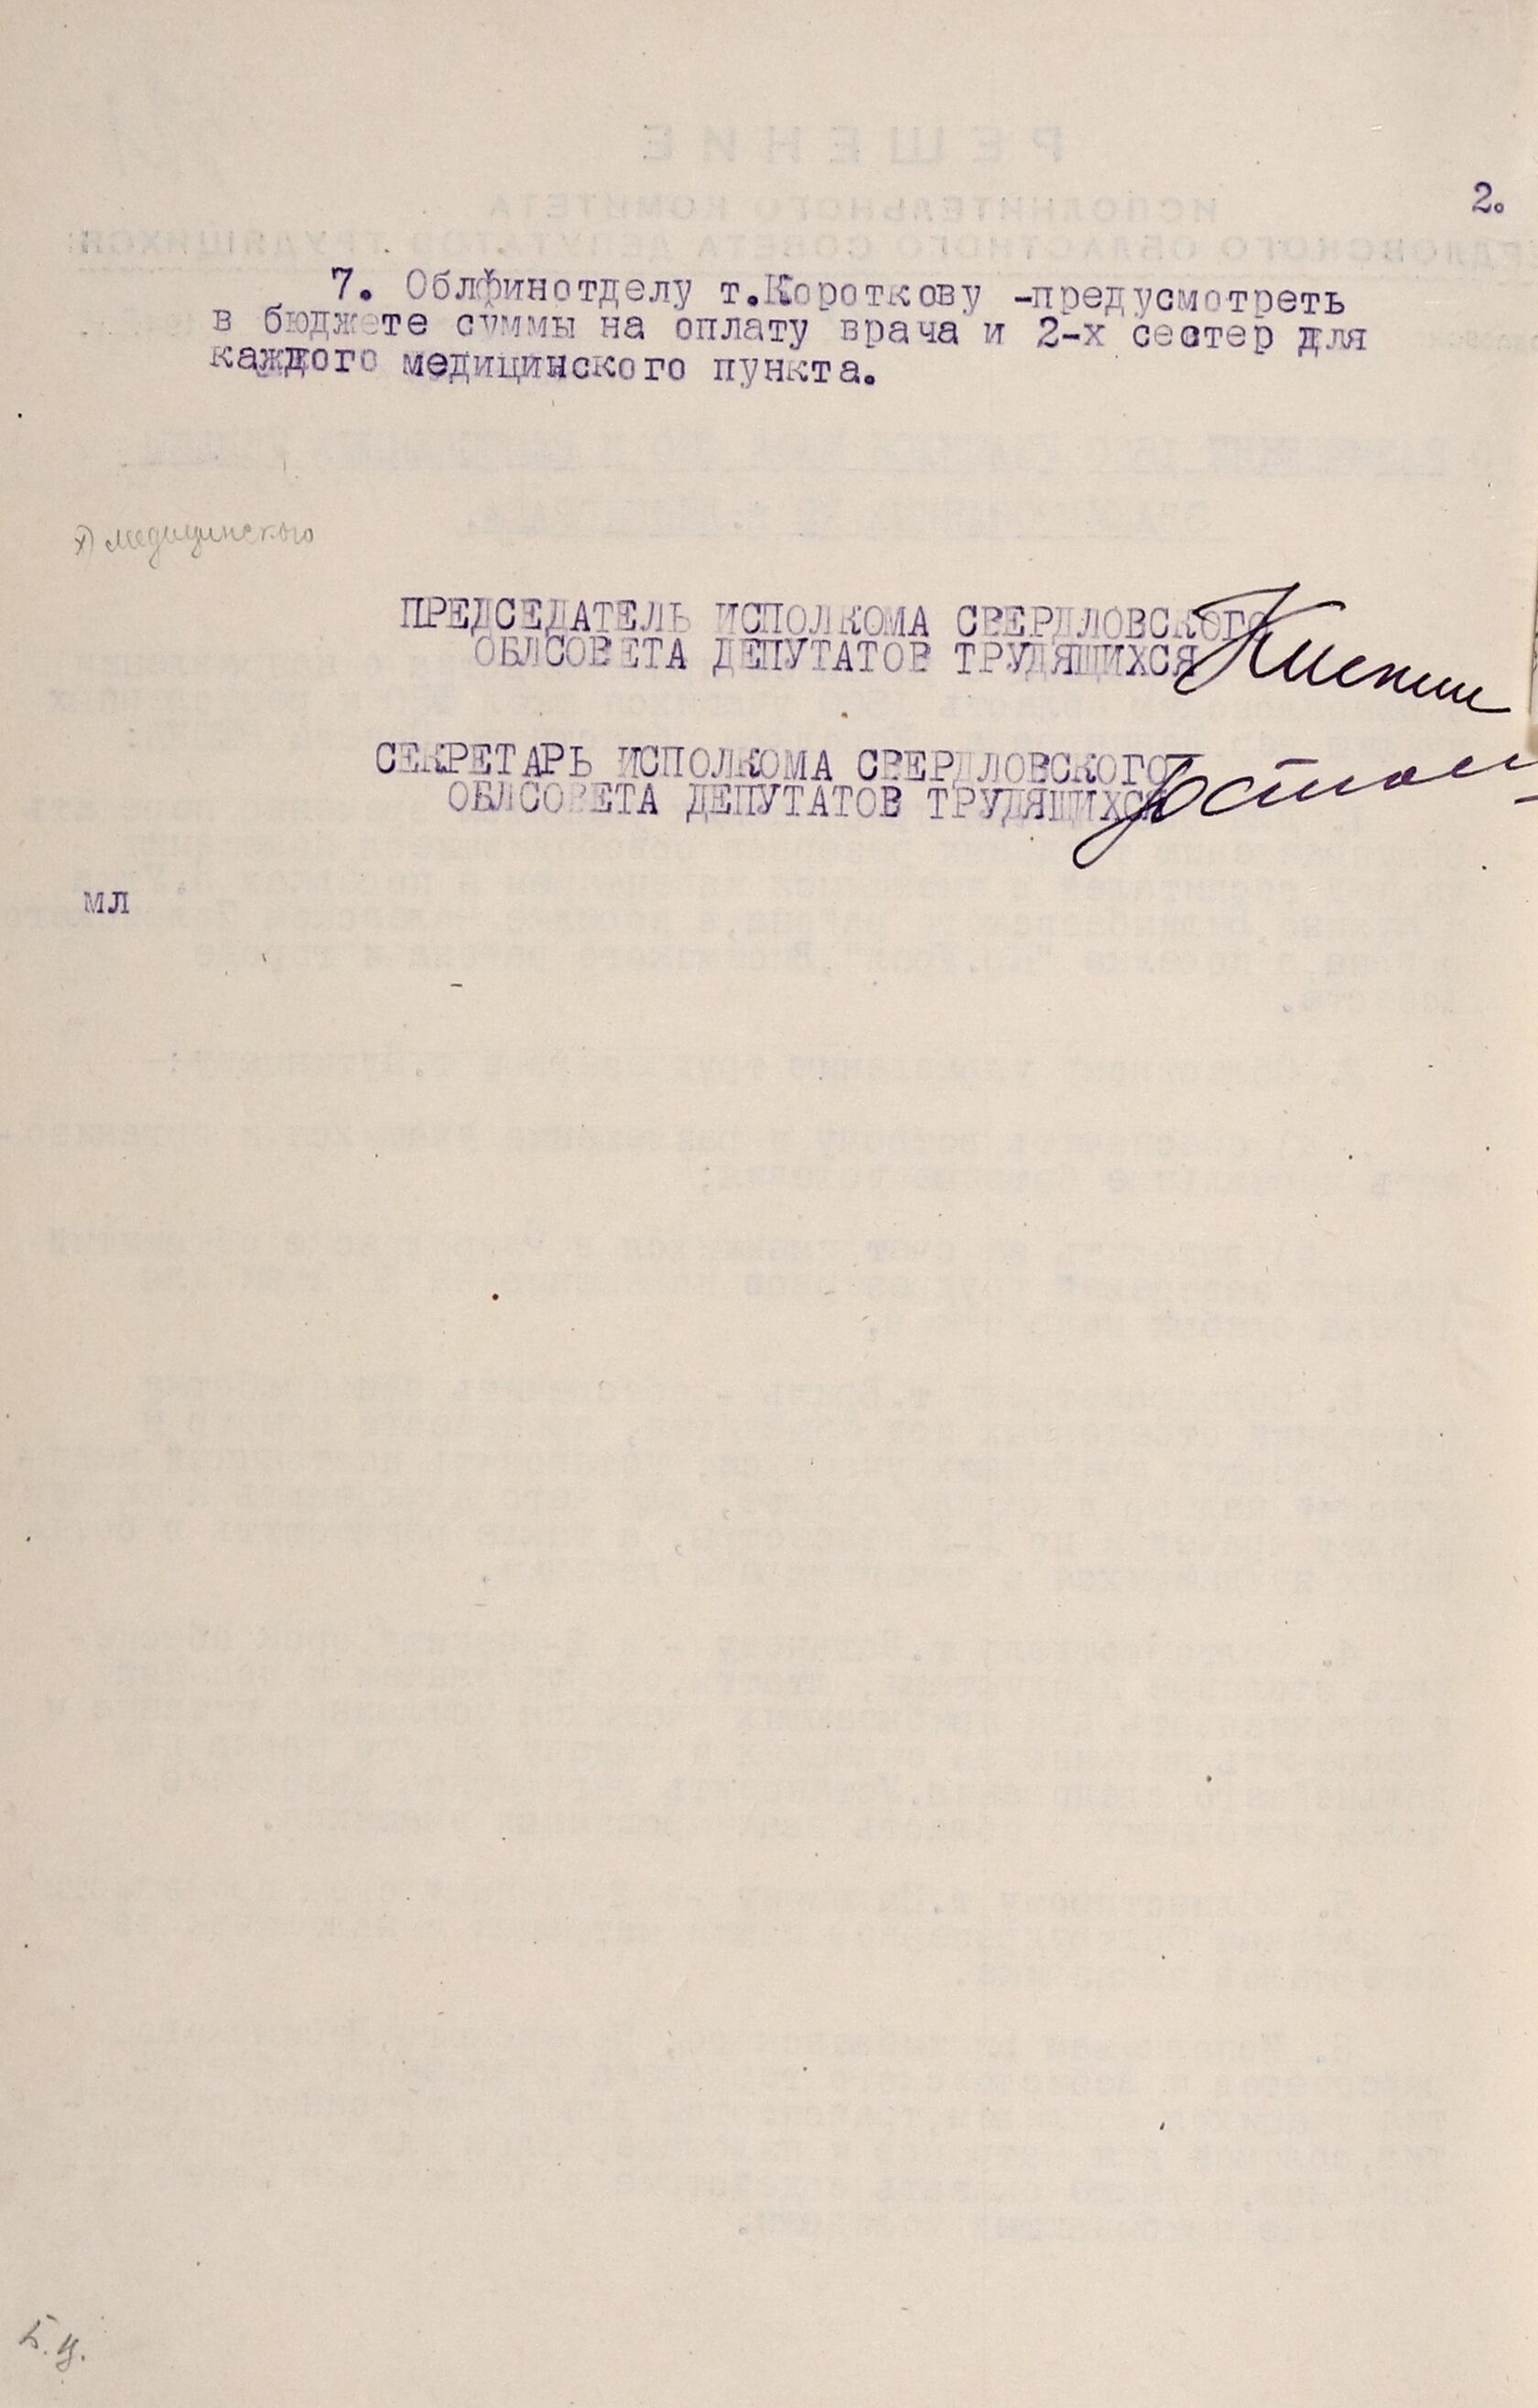 2.
7. Облфинотделу т.Короткову -предусмотреть
в бюджете суммы на оплату врача и 2-х сестер для
каждого медицинского пункта.
х) медицинского
ПРЕДСЕДАТЕЛЬ ИСПОЛКОМА СВЕРДЛОВСКОГО
ОБЛСОВЕТА ДЕПУТАТОВ ТРУДЯЩИХСЯ
СЕКРЕТАРЬ ИСПОЛКОМА СВЕРДЛОВСКОГО
ОБЛСОВЕТА ДЕПУТАТОВ ТРУДЯЩИХСЯ
мл